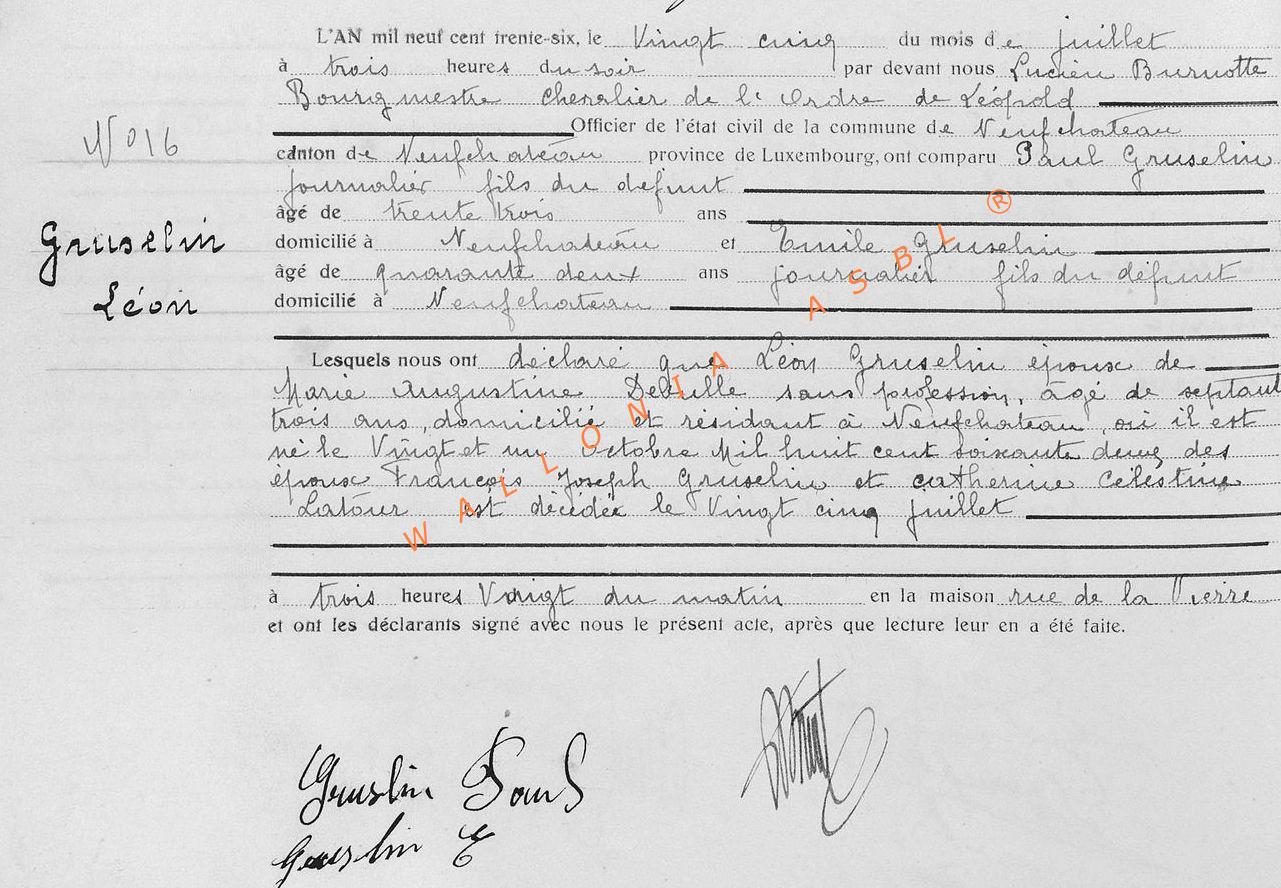 L'AN mil neuf cent trente-six, le Vingt cinq du mois de juillet
à trois heures du soir par devant nous Lucien Burnotte
Bourgmestre Chevalier de l'Ordre de Léopold
Officier de l'état civil de la commune de Neufchateau
canton de Neufchateau province de Luxembourg, ont comparu Paul Gruselin
journalier fils du defunt
âgé de trente trois ans
domicilié à Neufchateau et Emile Gruselin
âgé de quarante deux ans journalier fils du défunt
domicilié à Neufchateau
N° 16
Gruselin
Léon
Lesquels nous ont déclaré que Léon Gruselin époux de
Marie Augustine sans profession, âgé de septante
trois ans, domicilié et résidant à Neufchateau, où il est
né le Vingt et un Octobre Mil huit cent soixante deux des
époux François Joseph Gruselin et Catherine Célestine
Latour est décédé le Vingt cinq juillet
à trois heures Vingt du matin en la maison rue de la
et ont les déclarants signé avec nous le présent acte, après que lecture leur en a été faite.
Gruslin Paul
Gruslin E
WALLONIA ASBL ®